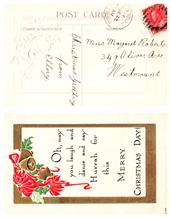 POST CARD
Christmas Greetings
from
Ellery
Miss Margaret Roberts
349 Olivier Ave
Westmount
Oh, may
you laugh and
dance and say
Hurrah for
this
MERRY
CHRISTMAS DAY!